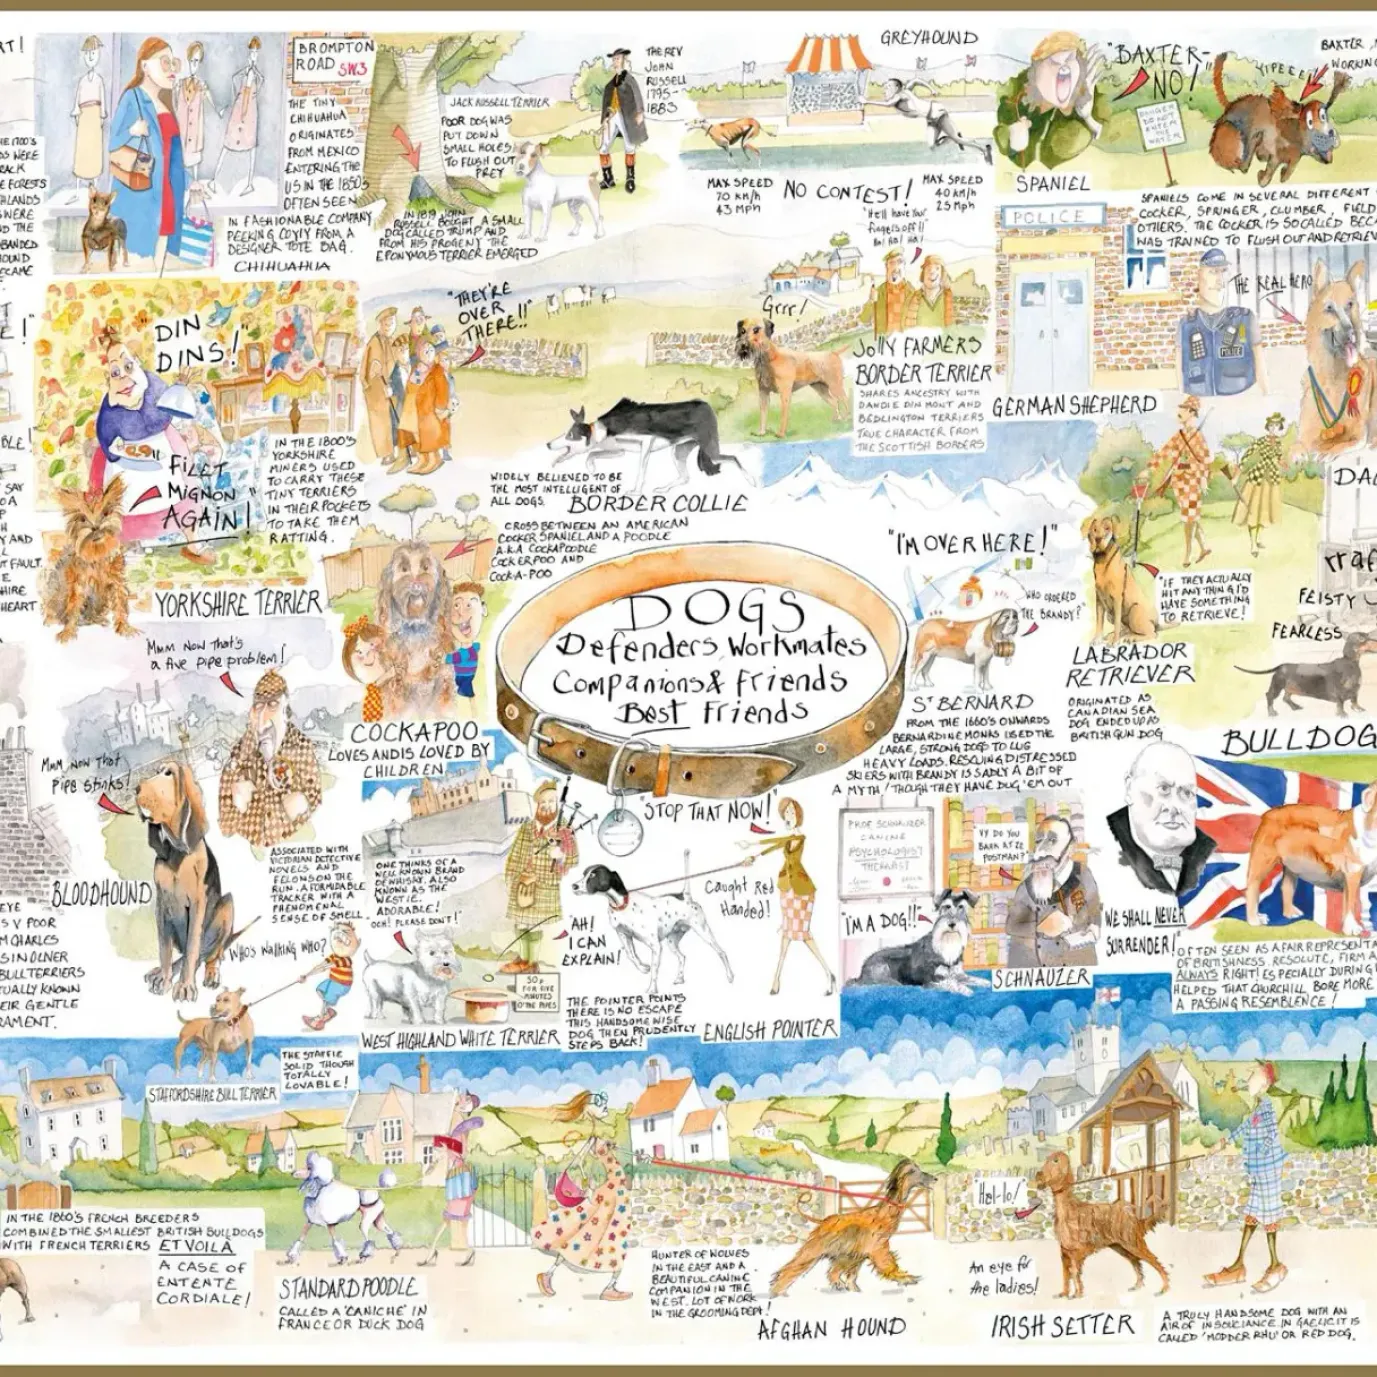 BROMPTON
ROAD SW3
THE TINY
CHIHUAHUA
ORIGINATES
FROM MEXICO
ENTERING THE
US IN THE 1850s
OFTEN SEEN
IN FASHIONABLE COMPANY
PEEKING COYLY FROM A
DESIGNER TOTE BAG.
CHIHUAHUA
JACK RUSSELL TERRIER
POOR DOG WAS
PUT DOWN
SMALL HOLES
TO FLUSH OUT
PREY
IN 1819 JOHN
RUSSELL BOUGHT A SMALL
DOG CALLED TRUMP AND
FROM HIS PROGENY THE
EPONYMOUS TERRIER EMERGED
THE REV
JOHN
RUSSELL
1795-
1883
GREYHOUND
MAX SPEED
70 KM/h
43 Mph
NO CONTEST!
MAX SPEED
40 KM/h
25 Mph
"BAXTER-
NO!"
DANGER
DO NOT
ENTER
THE
WATER
YIPEEE!
BAXTER,
WORKING
SPANIEL
SPANIELS COME IN SEVERAL DIFFERENT
COCKER, SPRINGER, CLUMBER, FIELD
OTHERS. THE COCKER IS SO CALLED BEC
WAS TRAINED TO FLUSH OUT AND RETRIEV
"DIN
DINS!"
"FILET
MIGNON
AGAIN!"
IN THE 1800'S
YORKSHIRE
MINERS USED
TO CARRY THESE
TINY TERRIERS
IN THEIR POCKETS
TO TAKE THEM
RATTING.
YORKSHIRE TERRIER
"THEY'RE
OVER
THERE!!"
WIDELY BELIEVED TO BE
THE MOST INTELLIGENT OF
ALL DOGS.
BORDER COLLIE
"He'll have your
fingers off!!
Ha! Ha! Ha!
Grrr!
JOLLY FARMERS
BORDER TERRIER
SHARES ANCESTRY WITH
DANDIE DINMONT AND
BEDLINGTON TERRIERS
TRUE CHARACTER FROM
THE SCOTTISH BORDERS
POLICE
THE REAL HERO
POLICE
GERMAN SHEPHERD
CROSS BETWEEN AN AMERICAN
COCKER SPANIEL AND A POODLE
A.K.A COCKAPOODLE
COCKERPOO AND
COCK-A-POO
COCKAPOO
LOVES AND IS LOVED BY
CHILDREN
DOGS
Defenders, Workmates
Companions & Friends
Best Friends
"I'M OVER HERE!"
WHO ORDERED
THE BRANDY?
ST BERNARD
FROM THE 1660'S ONWARDS
BERNARDINE MONKS USED THE
LARGE, STRONG DOGS TO LUG
HEAVY LOADS. RESCUING DISTRESSED
SKIERS WITH BRANDY IS SADLY A BIT OF
A MYTH! THOUGH THEY HAVE DUG 'EM OUT
"IF THEY ACTUALLY
HIT ANYTHING I'D
HAVE SOMETHING
TO RETRIEVE!
LABRADOR
RETRIEVER
ORIGINATED AS
CANADIAN SEA
DOG ENDED UP AS
BRITISH GUN DOG
FEISTY
FEARLESS
Mmm Now that's
a five pipe problem!
Mmm, Now that
Pipe stinks!
BLOODHOUND
ASSOCIATED WITH
VICTORIAN DETECTIVE
NOVELS AND
FELONS ON THE
RUN. A FORMIDABLE
TRACKER WITH A
PHENOMENAL
SENSE OF SMELL.
ONE THINKS OF A
WELL KNOWN BRAND
OF WHISKY. ALSO
KNOWN AS THE
WESTIE.
ADORABLE!
OCH! PLEASE DON'T!
WEST HIGHLAND WHITE TERRIER
50p
FOR FIVE
MINUTES
O' THE PIPES
"STOP THAT NOW!"
"AH!
I CAN
EXPLAIN!
Caught Red
Handed!
THE POINTER POINTS
THERE IS NO ESCAPE
THIS HANDSOME WISE
DOG THEN PRUDENTLY
STEPS BACK!
ENGLISH POINTER
PROF SCHNAUZER
CANINE
PSYCHOLOGIST
THERAPIST
"VY DO YOU
BARK AT ZE
POSTMAN?"
"I'M A DOG!!
SCHNAUZER
BULLDOG
WE SHALL NEVER
SURRENDER!
OFTEN SEEN AS A FAIR REPRESENTA
OF BRITISHNESS. RESOLUTE, FIRM A
ALWAYS RIGHT! ESPECIALLY DURING
HELPED THAT CHURCHILL BORE MORE
A PASSING RESEMBLENCE!
WHO'S WALKING WHO?
STAFFORDSHIRE BULL TERRIER
THE STAFFIE
SOLID THOUGH
TOTALLY
LOVABLE!
IN THE 1860'S FRENCH BREEDERS
COMBINED THE SMALLEST BRITISH BULLDOGS
WITH FRENCH TERRIERS ET VOILA
A CASE OF
ENTENTE
CORDIALE!
STANDARD POODLE
CALLED A 'CANICHE' IN
FRANCE OR DUCK DOG
HUNTER OF WOLVES
IN THE EAST AND A
BEAUTIFUL CANINE
COMPANION IN THE
WEST. LOT OF WORK
IN THE GROOMING DEPT!
AFGHAN HOUND
"Hal-lo!"
An eye for
the ladies!
IRISH SETTER
A TRULY HANDSOME DOG WITH AN
AIR OF INSOUCIANCE. IN GAELIC IT IS
CALLED 'MODDER RHU' OR RED DOG.